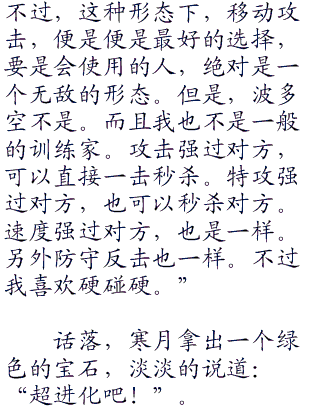 不过，这种形态下，移动攻
击，便是便是最好的选择，
要是会使用的人，绝对是一
个无敌的形态。但是，波多
空不是。而且我也不是一般
的训练家。攻击强过对方，
可以直接一击秒杀。特攻强
过对方，也可以秒杀对方。
速度强过对方，也是一样。
另外防守反击也一样。不过
我喜欢硬碰硬。”
话落，寒月拿出一个绿
色的宝石，淡淡的说道：
“超进化吧！”。